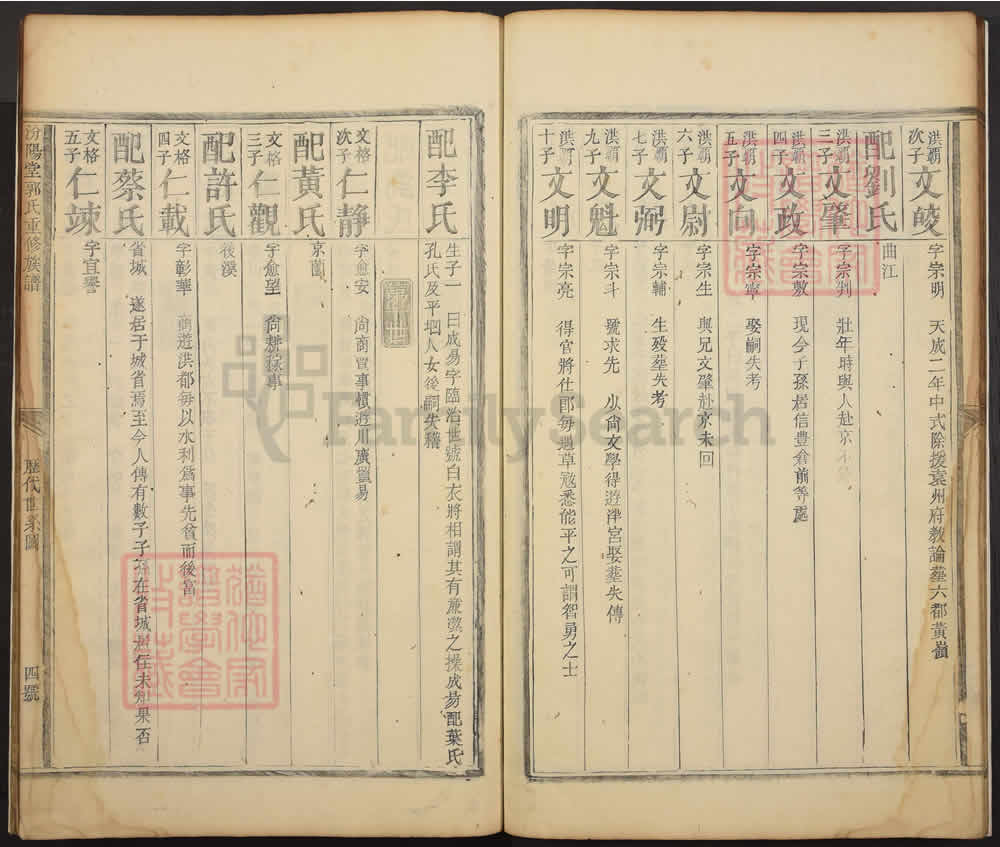 洪霸次子 文崚 字宗明 天成二年中式除授袁州府教諭塟六都黃嶺
配劉氏 曲江
洪霸三子 文肇 字宗判 壯年時與人赴京
洪霸四子 文政 字宗敷 現今子孫居信豊倉前等處
洪霸五子 文向 字宗寧 娶嗣失考
洪霸六子 文尉 字宗生 與兄文肇赴京未回
洪霸七子 文弼 字宗輔 生歿塟失考
洪霸九子 文魁 字宗斗 號求先 少尚文學得遊泮宮娶塟失傳
洪霸十子 文明 字宗亮 得官將仕郎每遇草寇悉能平之可謂智勇之士
配李氏 生子一 曰成易字臨治世號白衣將相謂其有廉潔之操成易配葉氏
孔氏及平堌人女後嗣失稽
第世
文格次子 仁靜 字愈安 尙商賈事慣近川廣貿易
配黃氏 京園
文格三子 仁觀 字愈望 尙耕種事
配許氏 後溪
文格四子 仁載 字彰華 商遊洪都每以水利爲事先貧而後富
配蔡氏 省城 遂居于城省焉至今人傳有數子子孫在省城居住未知果否
文格五子 仁竦 字宜譽
汾陽堂郭氏重修族譜 歷代世系圖 四號
FamilySearch